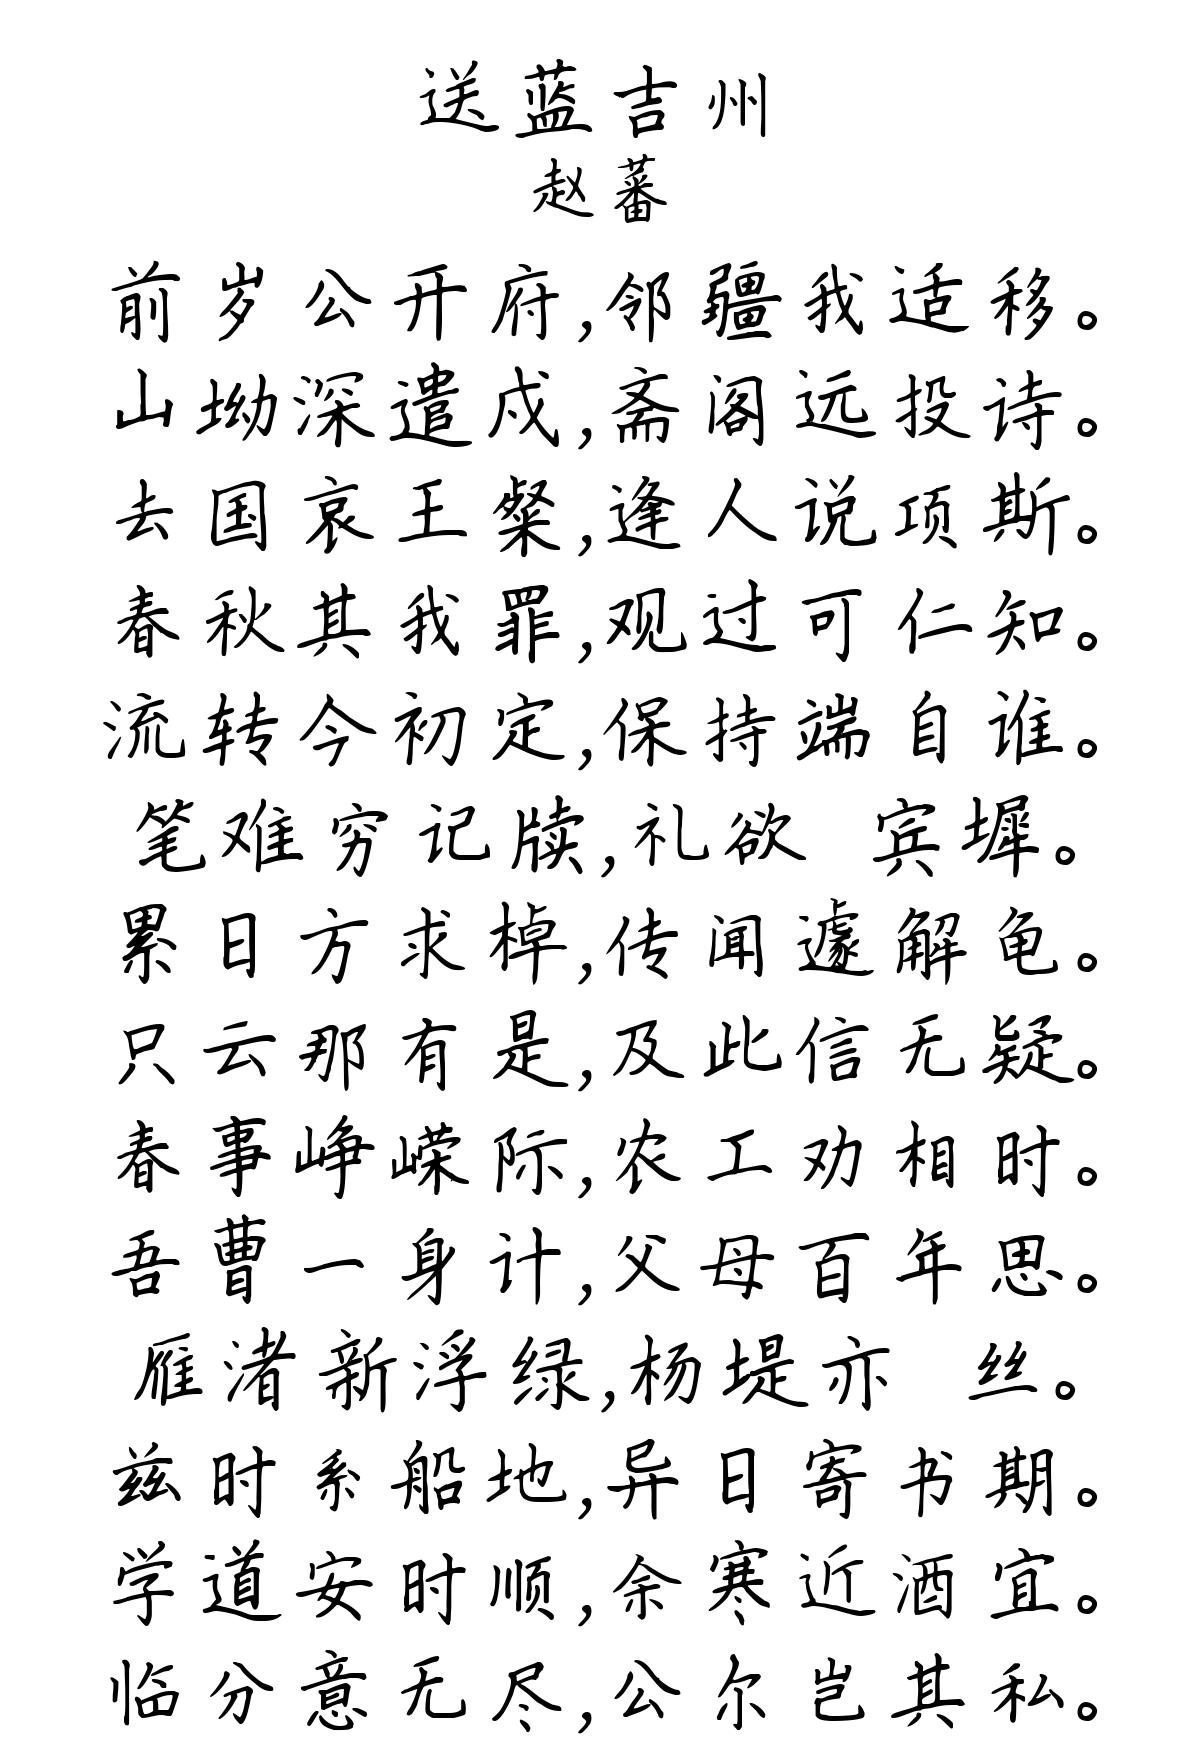 送蓝吉州
赵蕃
前岁公开府,邻疆我适移。
山坳深遣戍,斋阁远投诗。
去国哀王粲,逢人说项斯。
春秋其我罪,观过可仁知。
流转今初定,保持端自谁。
笔难穷记牍,礼欲 宾墀。
累日方求棹,传闻遽解龟。
只云那有是,及此信无疑。
春事峥嵘际,农工劝相时。
吾曹一身计,父母百年思。
雁渚新浮绿,杨堤亦 丝。
兹时系船地,异日寄书期。
学道安时顺,余寒近酒宜。
临分意无尽,公尔岂其私。